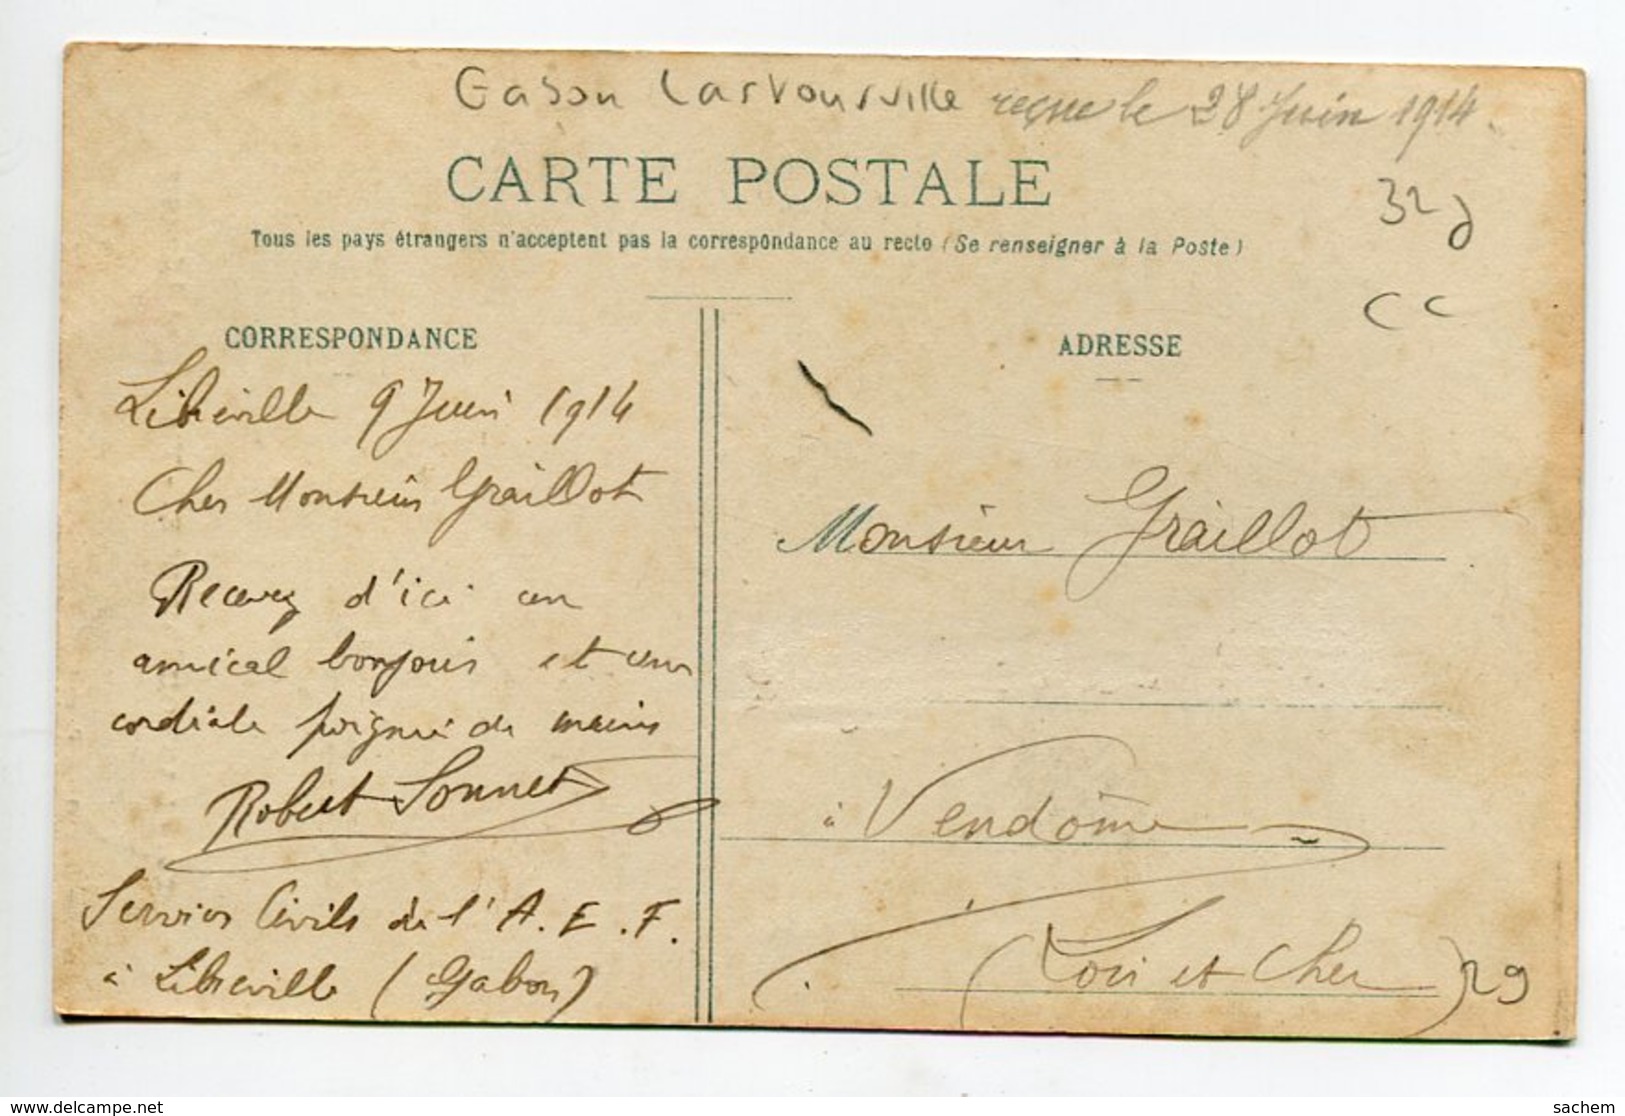 Gabon Lastoursville reçue le 28 Juin 1914.
CARTE POSTALE
32 d
Tous les pays étrangers n'acceptent pas la correspondance au recto (Se renseigner à la Poste)
CC
CORRESPONDANCE
Libreville 9 Juin 1914
Cher Monsieur Graillot
Recevez d'ici un
amical bonjour et une
cordiale poignée de mains
Robert Sonnet
Services Civils de l'A.E.F.
à Libreville (Gabon)
ADRESSE
Monsieur Graillot
à Vendôme
(Loir et Cher)
29
www.delcampe.net
sachem